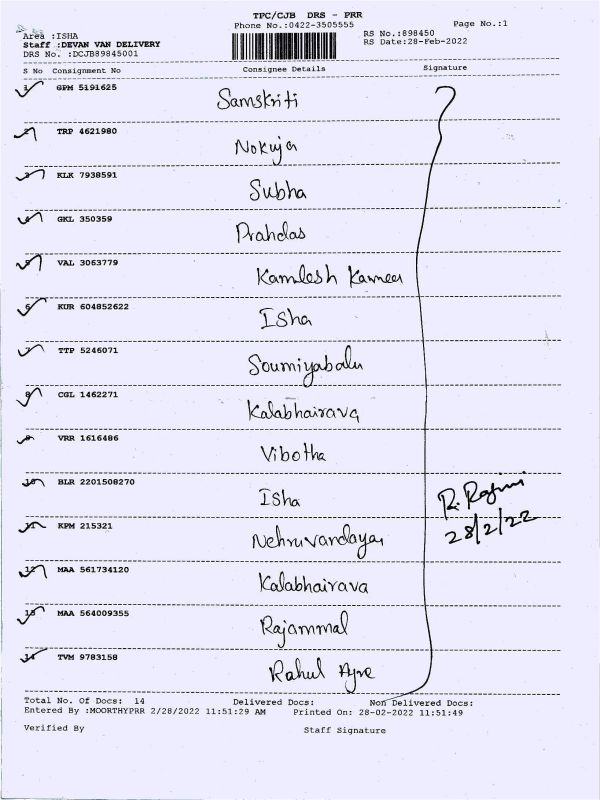 TPC/CJB DRS - PRR
Phone No.:0422-3505555
Page No.:1
Area :ISHA
RS No.:898450
Staff :DEVAN VAN DELIVERY
RS Date:28-Feb-2022
DRS No. :DCJB89845001
S No Consignment No Consignee Details Signature
1 GPM 5191625 Samskriti
2 TRP 4621980 Nokuja
3 KLK 7938591 Subha
4 GKL 350359 Prahdas
5 VAL 3063779 Kamlesh
6 KUR 604852622 Isha
7 TTP 5246071 Soumiyabalu
8 CGL 1462271 Kalabhairava
9 VRR 1616486 Vibotha
10 BLR 2201508270 Isha
R. Rajini
28/2/22
11 KPM 215321 Nehruvandayar
12 MAA 561734120 Kalabhairava
13 MAA 564009355 Rajammal
14 TVM 9783158 Rahul
Total No. Of Docs: 14 Delivered Docs: Non Delivered Docs:
Entered By :MOORTHYPRR 2/28/2022 11:51:29 AM Printed On: 28-02-2022 11:51:49
Verified By Staff Signature